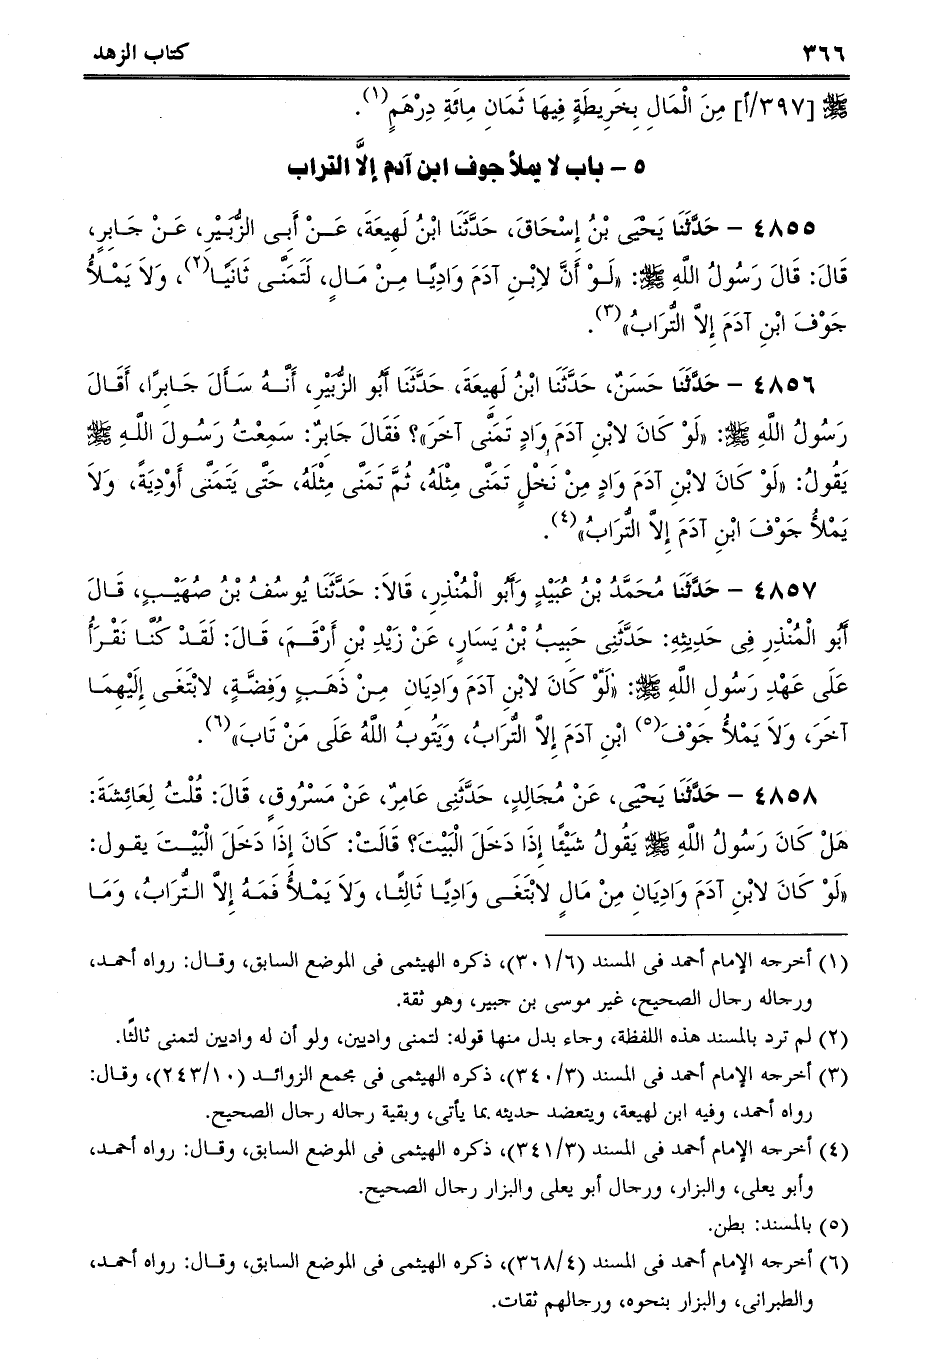 ٣٦٦ كتاب الزهد
ﷺ [٣٩٧/أ] مِنَ الْمَالِ بِخَرِيطَةٍ فِيهَا ثَمَانِ مِائَةِ دِرْهَمٍ(١).
٥ – باب لا يملأ جوف ابن آدم إلاَّ التراب
٤٨٥٥ – حَدَّثَنَا يَحْيَى بْنُ إِسْحَاقَ، حَدَّثَنَا ابْنُ لَهِيعَةَ، عَنْ أَبِى الزُّبَيْرِ، عَنْ جَابِرٍ،
قَالَ: قَالَ رَسُولُ اللَّهِ ﷺ: «لَوْ أَنَّ لاِبْنِ آدَمَ وَادِيًا مِنْ مَالٍ، لَتَمَنَّى ثَانِيًا(٢)، وَلاَ يَمْلأُ
جَوْفَ ابْنِ آدَمَ إِلاَّ التُّرَابُ»(٣).
٤٨٥٦ – حَدَّثَنَا حَسَنٌ، حَدَّثَنَا ابْنُ لَهِيعَةَ، حَدَّثَنَا أَبُو الزُّبَيْرِ، أَنَّهُ سَأَلَ جَابِرًا، أَقَالَ
رَسُولُ اللَّهِ ﷺ: «لَوْ كَانَ لابْنِ آدَمَ وَادٍ تَمَنَّى آخَرَ»؟ فَقَالَ جَابِرٌ: سَمِعْتُ رَسُولَ اللَّهِ ﷺ
يَقُولُ: «لَوْ كَانَ لابْنِ آدَمَ وَادٍ مِنْ نَخْلٍ تَمَنَّى مِثْلَهُ، ثُمَّ تَمَنَّى مِثْلَهُ، حَتَّى يَتَمَنَّى أَوْدِيَةً، وَلاَ
يَمْلأُ جَوْفَ ابْنِ آدَمَ إِلاَّ التُّرَابُ»(٤).
٤٨٥٧ – حَدَّثَنَا مُحَمَّدُ بْنُ عُبَيْدٍ وَأَبُو الْمُنْذِرِ، قَالاَ: حَدَّثَنَا يُوسُفُ بْنُ صُهَيْبٍ، قَالَ
أَبُو الْمُنْذِرِ فِى حَدِيثِهِ: حَدَّثَنِى حَبِيبُ بْنُ يَسَارٍ، عَنْ زَيْدِ بْنِ أَرْقَمَ، قَالَ: لَقَدْ كُنَّا نَقْرَأُ
عَلَى عَهْدِ رَسُولِ اللَّهِ ﷺ: «لَوْ كَانَ لابْنِ آدَمَ وَادِيَانِ مِنْ ذَهَبٍ وَفِضَّةٍ، لابْتَغَى إِلَيْهِمَا
آخَرَ، وَلاَ يَمْلأُ جَوْفَ(٥) ابْنِ آدَمَ إِلاَّ التُّرَابُ، وَيَتُوبُ اللَّهُ عَلَى مَنْ تَابَ»(٦).
٤٨٥٨ – حَدَّثَنَا يَحْيَى، عَنْ مُجَالِدٍ، حَدَّثَنِى عَامِرٌ، عَنْ مَسْرُوقٍ، قَالَ: قُلْتُ لِعَائِشَةَ:
هَلْ كَانَ رَسُولُ اللَّهِ ﷺ يَقُولُ شَيْئًا إِذَا دَخَلَ الْبَيْتَ؟ قَالَتْ: كَانَ إِذَا دَخَلَ الْبَيْتَ يقول:
«لَوْ كَانَ لابْنِ آدَمَ وَادِيَانِ مِنْ مَالٍ لابْتَغَى وَادِيًا ثَالِثًا، وَلاَ يَمْلأُ فَمَهُ إِلاَّ التُّرَابُ، وَمَا
(١) أخرجه الإمام أحمد فى المسند (٣٠١/٦)، ذكره الهيثمى فى الموضع السابق، وقال: رواه أحمد،
ورجاله رجال الصحيح، غير موسى بن جبير، وهو ثقة.
(٢) لم ترد بالمسند هذه اللفظة، وجاء بدل منها قوله: لتمنى واديين، ولو أن له واديين لتمنى ثالثًا.
(٣) أخرجه الإمام أحمد فى المسند (٣٤٠/٣)، ذكره الهيثمى فى مجمع الزوائد (٢٤٣/١٠)، وقال:
رواه أحمد، وفيه ابن لهيعة، ويتعضد حديثه بما يأتى، وبقية رجاله رجال الصحيح.
(٤) أخرجه الإمام أحمد فى المسند (٣٤١/٣)، ذكره الهيثمى فى الموضع السابق، وقال: رواه أحمد،
وأبو يعلى، والبزار، ورجال أبو يعلى والبزار رجال الصحيح.
(٥) بالمسند: بطن.
(٦) أخرجه الإمام أحمد فى المسند (٣٦٨/٤)، ذكره الهيثمى فى الموضع السابق، وقال: رواه أحمد،
والطبرانى، والبزار بنحوه، ورجالهم ثقات.